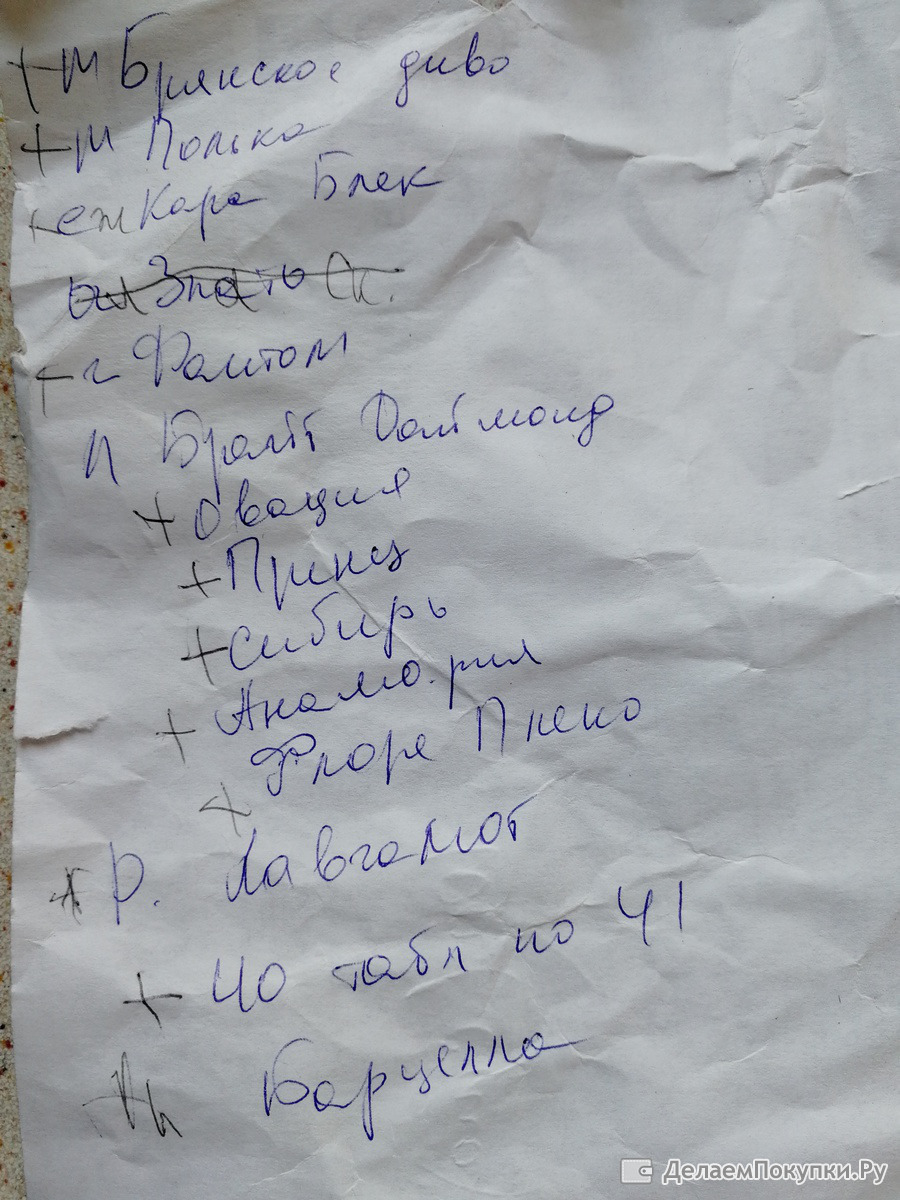 + м Брянское диво
+ м Полька
+ еж Кара Блек
+ г Фантом
п Брайт Даймонд
+ Овация
+ Принц
+ Сибирь
+ Анамо.рия
+ Флоре Плено
+ р. Лавгамот
+ 40 табл по 41
Барцелла
ДелаемПокупки.Ру